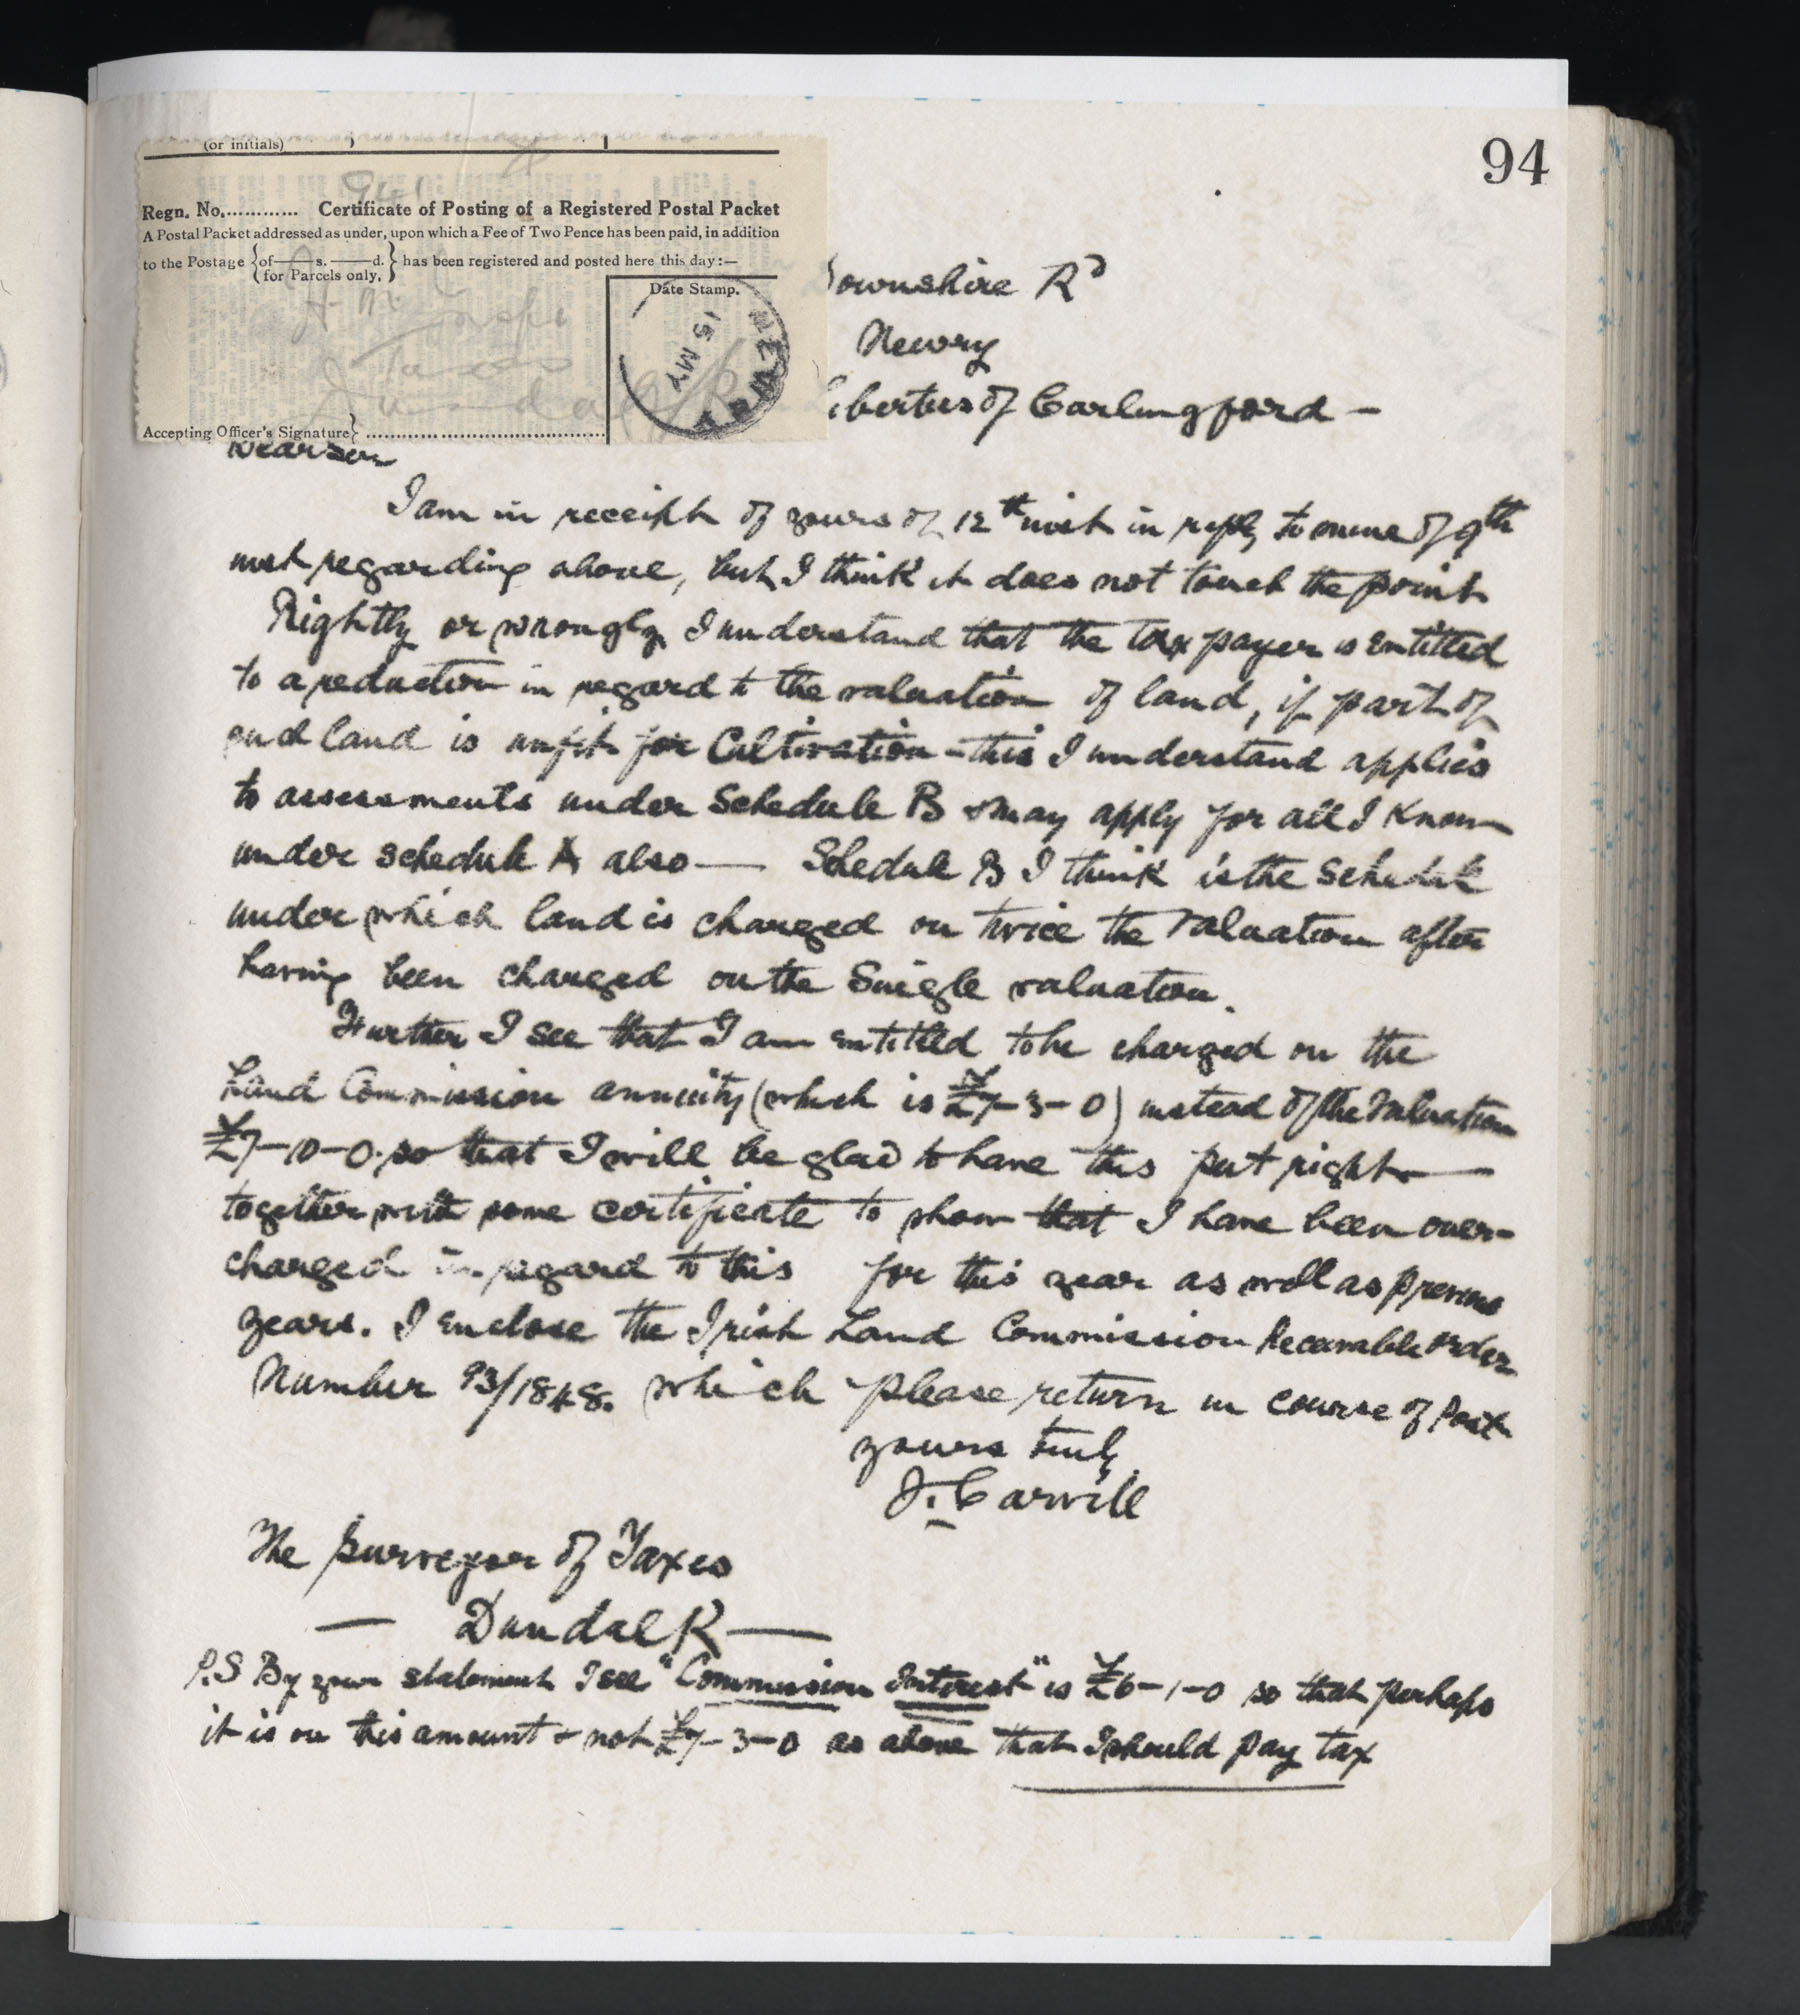 94
(or initials)
Regn. No............. Certificate of Posting of a Registered Postal Packet
A Postal Packet addressed as under, upon which a Fee of Two Pence has been paid, in addition
to the Postage {of——s.——d. for Parcels only.} has been registered and posted here this day:—
Date Stamp.
NEWRY
15 MY
Taxes
Dundalk
Accepting Officer's Signature} ..........................................
ownshire Rd
Newry
iberties of Carlingford —
Dear Sir
I am in receipt of yours of 12th inst in reply to mine of 9th
inst regarding above, but I think it does not touch the point
Rightly or wrongly I understand that the tax payer is entitled
to a reduction in regard to the valuation of land, if part of
such land is unfit for Cultivation - this I understand applies
to assessments under Schedule B & may apply for all I know
under schedule A also — Schedule B I think is the Schedule
under which land is charged on twice the valuation after
having been charged on the Single valuation.
Further I see that I am entitled to be charged on the
Land Commission annuity (which is £7-3-0) instead of the Valuation
£7-10-0. so that I will be glad to have this put right —
together with some certificate to show that I have been over-
charged in regard to this for this year as well as previous
years. I enclose the Irish Land Commission Receivable order
Number 93/1848. which please return in course of Post
yours truly
J. Carvill
The Surveyor of Taxes
— Dundalk —
P.S By your statement I see "Commission Interest" is £6-1-0 so that perhaps
it is on this amount & not £7-3-0 as above that I should pay tax